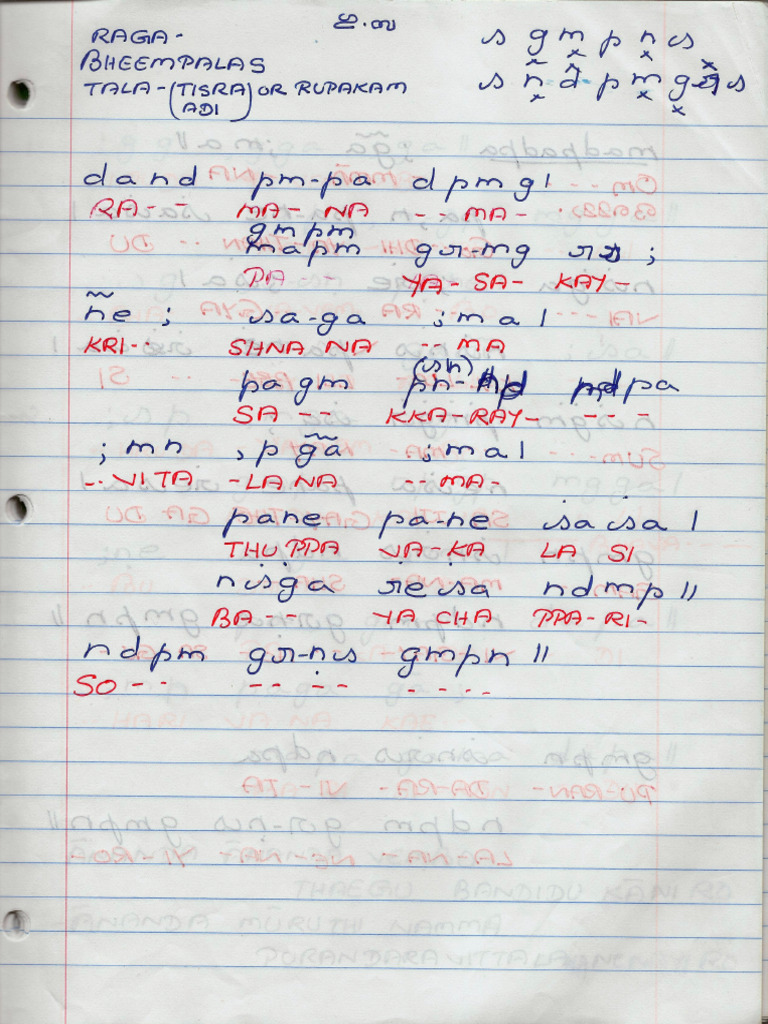 உ.௭
RAGA-
BHEEMPALAS
TALA-(TISRA) OR RUPAKAM
ADI
s g m p n s
s n d p m g r s
dand pm-pa dpmg|
RA-- MA-NA --MA-
gmpm
mapm gr-mg rs ;
PA-- YA-SA- KAY-
ne ; sa-ga ;ma|
KRI-- SHNA NA --MA
(sn)
pagm pn- pa
SA-- KKA-RAY- ---
;mn ,pga ;ma|
--VITA -LANA --MA-
pane pa-ne sasa|
THUPPA VA-KA LA SI
nisga resa ndmp||
BA-- YA CHA PPA-RI-
ndpm gr-ns gmpn||
SO-- ---- ----